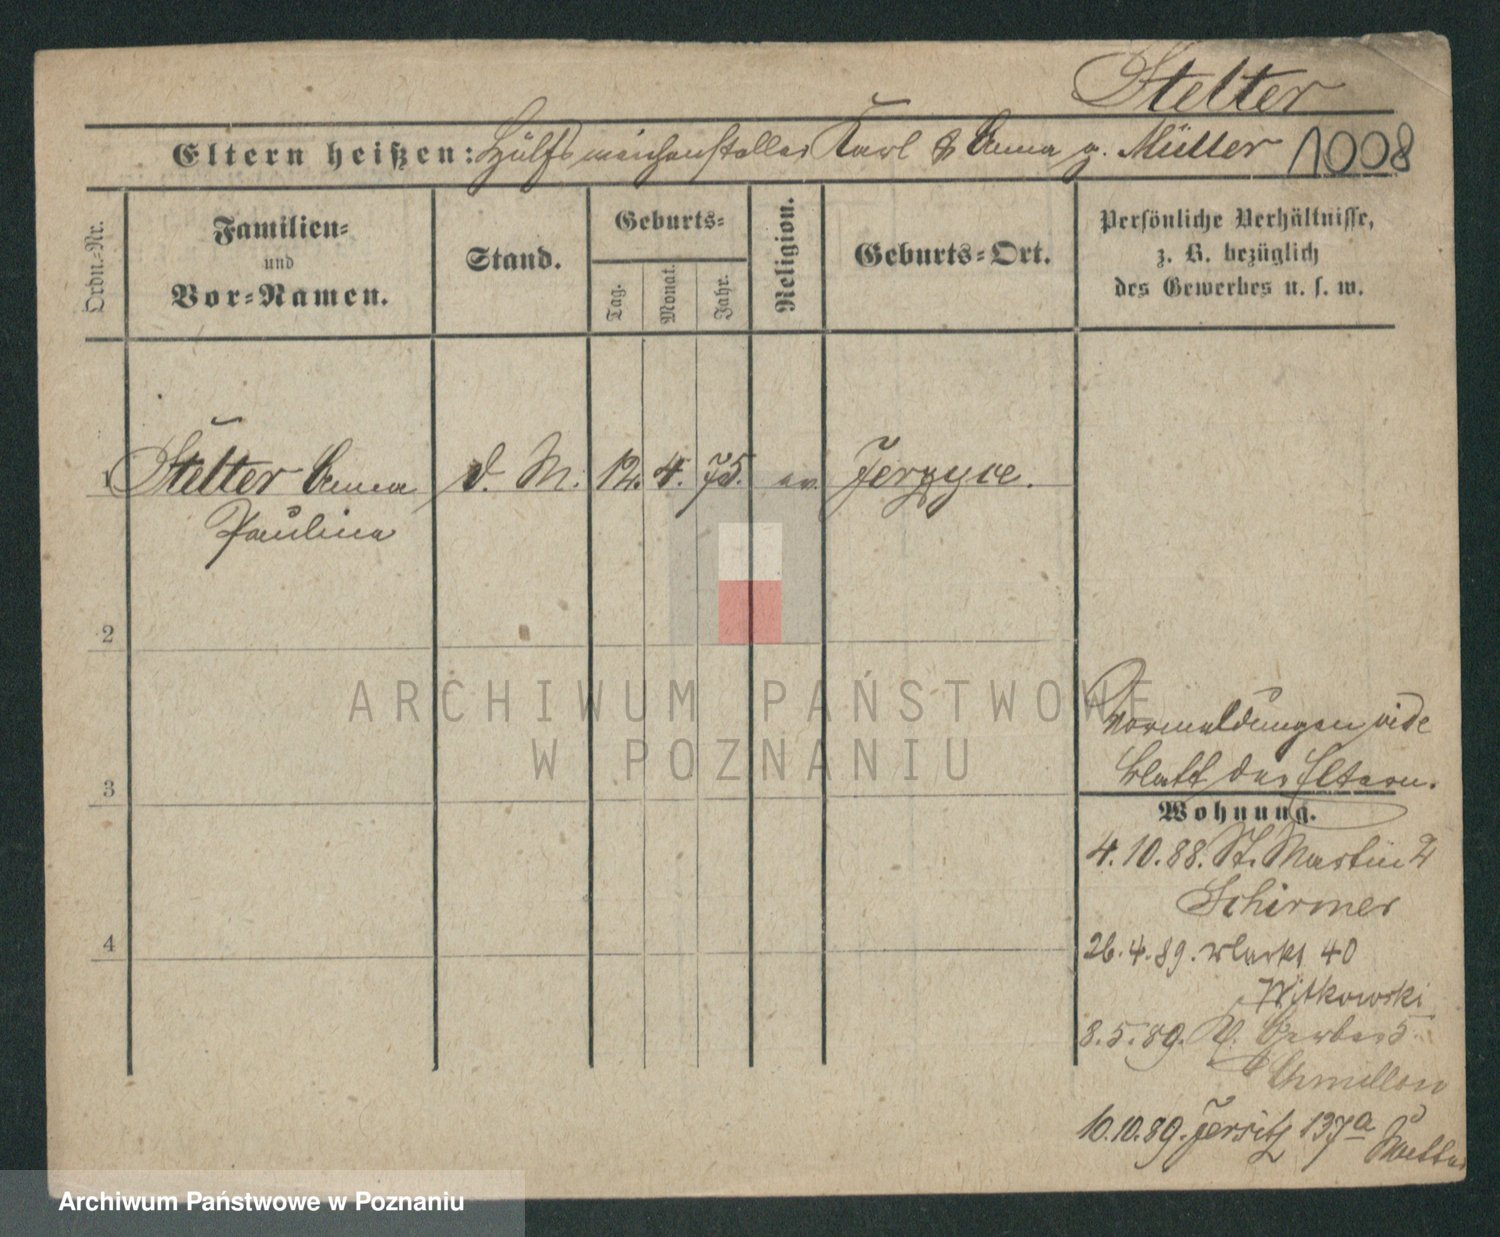 Stelter
Eltern heißen: Hülfsweichensteller Karl & Anna g. Müller 1008
Ordn.-Nr.
Familien-
und
Vor-Namen.
Stand.
Geburts-
Tag.
Monat.
Jahr.
Religion.
Geburts-Ort.
Persönliche Verhältnisse,
z. B. bezüglich
des Gewerbes u. s. w.
1 Stelter Anna d. M. 12. 4. 75. ev. Jerzyce.
Paulina
2
3
4
Vormeldungen vide
Blatt der Eltern.
Wohnung.
4.10.88. St. Martin 2
Schirmer
26.4.89. Markt 40
Witkowski
8.5.89. Gerber 5
10.10.89. Jersitz 137a Mutter
ARCHIWUM PAŃSTWOWE
W POZNANIU
Archiwum Państwowe w Poznaniu